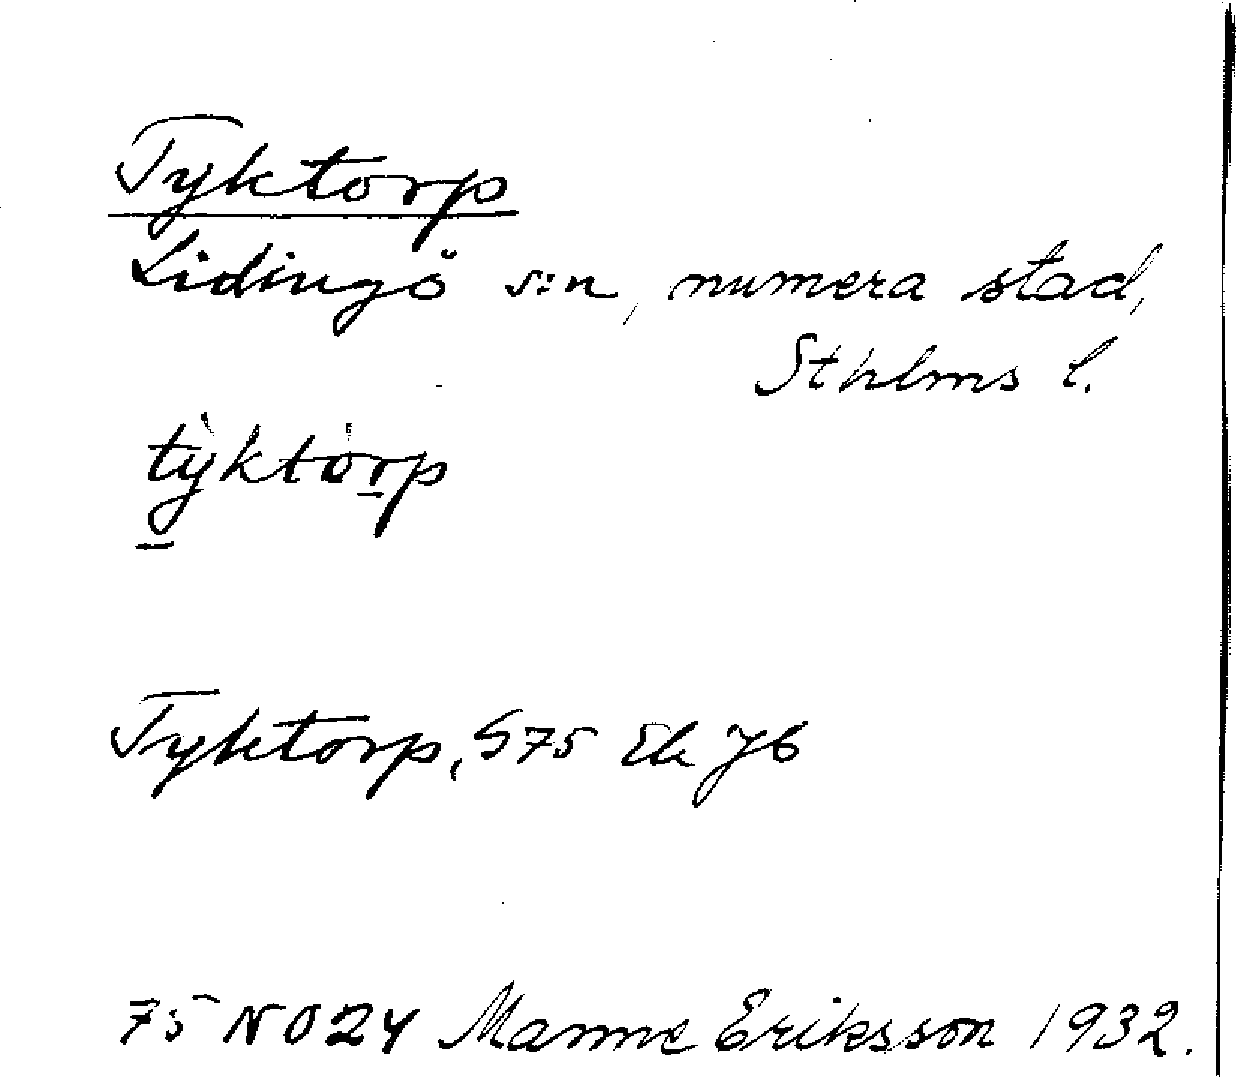 Tyktorp
Lidingö s:n, numera stad,
Sthlms l.
tỳktȯrp
Tyktorp, S75 Ek J6
75 NO24 Manne Eriksson 1932.